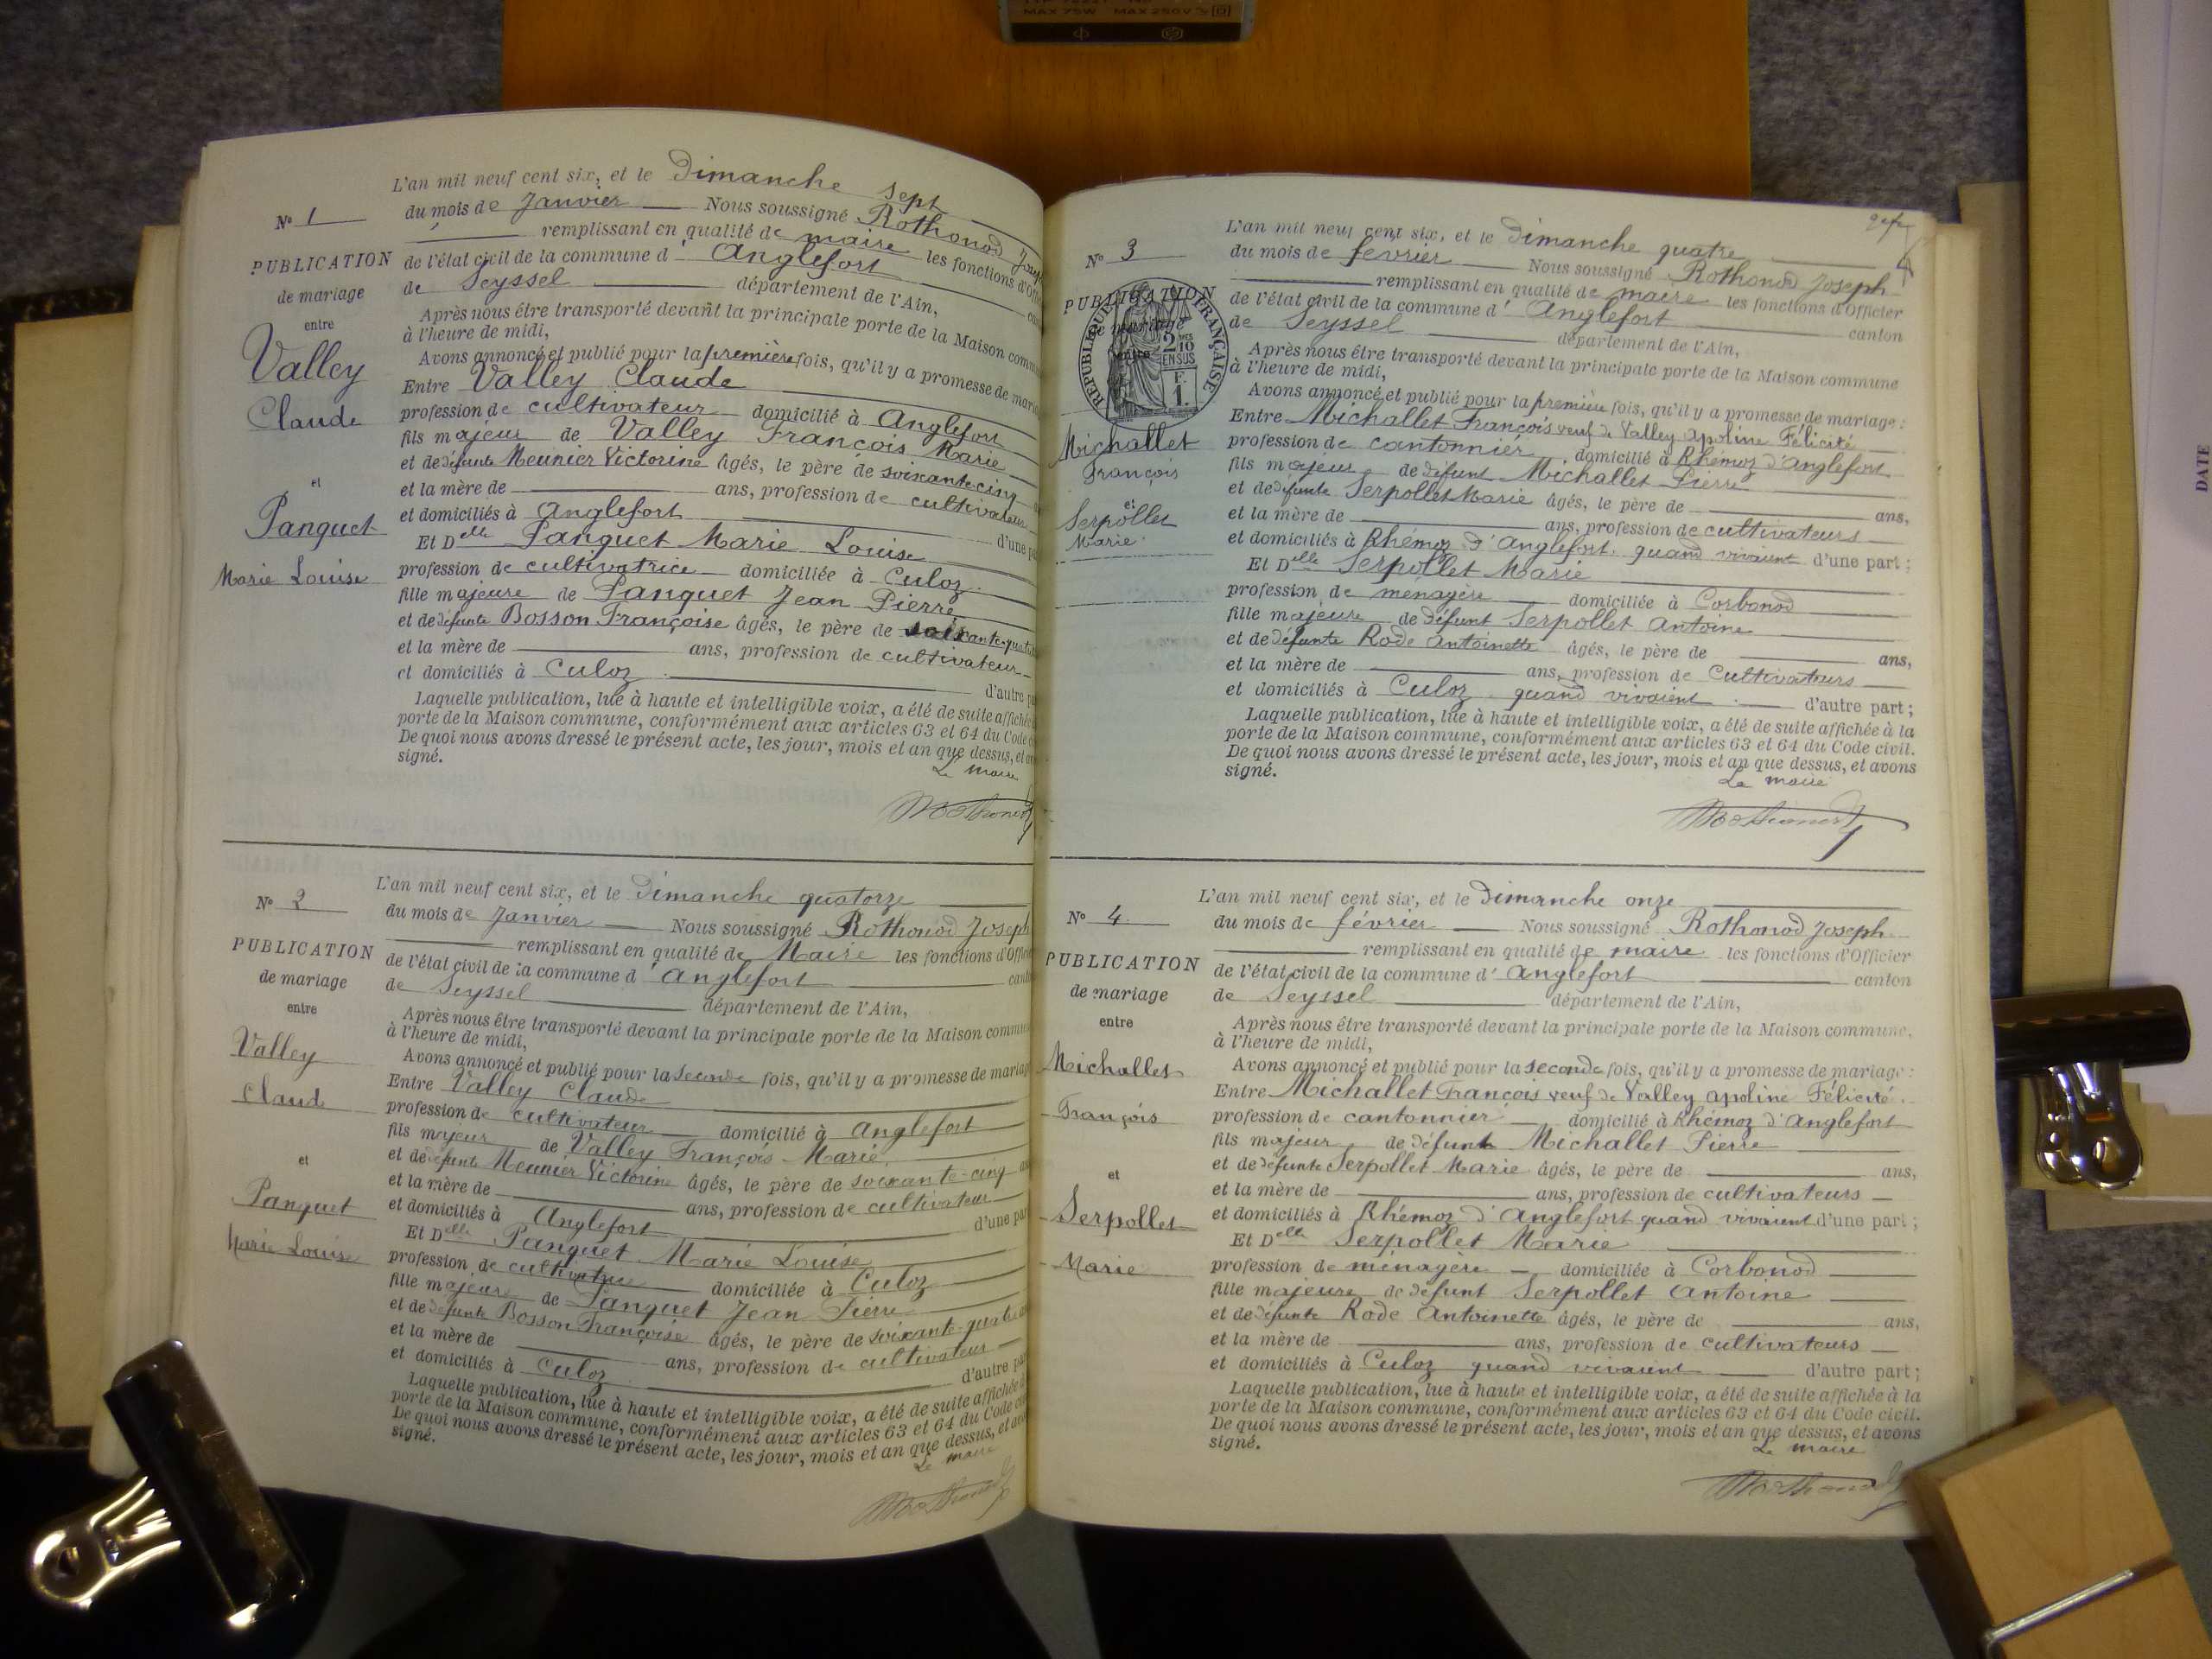 MAX 75W MAX 250V
L'an mil neuf cent six, et le Dimanche sept
N° 1
du mois de Janvier Nous soussigné Rothonod
remplissant en qualité de maire les fonctions
PUBLICATION
de l'état civil de la commune d'Anglefort
de mariage
de Seyssel département de l'Ain,
entre
Après nous être transporté devant la principale porte de la Maison
à l'heure de midi,
Avons annoncé et publié pour la première fois, qu'il y a promesse de
Valley
Entre Valley Claude
Claude
profession de cultivateur domicilié à Anglefort
fils majeur de Valley François Marie
et de défunte Meunier Victorine âgés, le père de soixante-cinq
et
et la mère de ans, profession de cultivateur
Panquet
et domiciliés à Anglefort
Et Delle Panquet Marie Louise
Marie Louise
profession de cultivatrice domiciliée à Culoz
fille majeure de Panquet Jean Pierre
et de défunte Bosson Françoise âgés, le père de
et la mère de ans, profession de cultivateur
et domiciliés à Culoz d'autre
Laquelle publication, lue à haute et intelligible voix, a été de suite
porte de la Maison commune, conformément aux articles 63 et 64 du Code
De quoi nous avons dressé le présent acte, les jour, mois et an que dessus, et
signé.
Le maire
Rothonod
L'an mil neuf cent six, et le Dimanche quatorze
N° 2
du mois de Janvier Nous soussigné Rothonod Joseph
remplissant en qualité de Maire les fonctions
PUBLICATION
de l'état civil de la commune d'Anglefort
de mariage
de Seyssel département de l'Ain,
entre
Après nous être transporté devant la principale porte de la Maison
à l'heure de midi,
Avons annoncé et publié pour la seconde fois, qu'il y a promesse de
Valley
Entre Valley Claude
Claude
profession de cultivateur domicilié à Anglefort
fils majeur de Valley François Marie
et de défunte Meunier Victorine âgés, le père de soixante-cinq
et
et la mère de ans, profession de cultivateur
Panquet
et domiciliés à Anglefort d'une
Et Delle Panquet Marie Louise
Marie Louise
profession de cultivatrice domiciliée à Culoz
fille majeure de Panquet Jean Pierre
et de défunte Bosson Françoise âgés, le père de soixante-quatre
et la mère de ans, profession de cultivateur
et domiciliés à Culoz d'autre
Laquelle publication, lue à haute et intelligible voix, a été de suite
porte de la Maison commune, conformément aux articles 63 et 64 du Code
De quoi nous avons dressé le présent acte, les jour, mois et an que dessus, et
signé.
Le maire
Rothonod
L'an mil neuf cent six, et le Dimanche quatre
N° 3
du mois de fevrier Nous soussigné Rothonod Joseph
remplissant en qualité de maire les fonctions d'Officier
PUBLICATION
de l'état civil de la commune d'Anglefort canton
de mariage
de Seyssel département de l'Ain,
entre
RÉPUBLIQUE FRANÇAISE
2 MES 10 EN SUS
F. 1.
Après nous être transporté devant la principale porte de la Maison commune
à l'heure de midi,
Avons annoncé et publié pour la première fois, qu'il y a promesse de mariage :
Entre Michallet François veuf de Valley apoline Félicité
Michallet
profession de cantonnier domicilié à Rhémoz d'Anglefort
François
fils majeur de défunt Michallet Pierre
et de défunte Serpollet Marie âgés, le père de ans,
et
Serpollet
et la mère de ans, profession de cultivateurs
Marie
et domiciliés à Rhémoz d'Anglefort quand vivaient d'une part ;
Et Delle Serpollet Marie
profession de ménagère domiciliée à Corbonod
fille majeure de défunt Serpollet Antoine
et de défunte Rode Antoinette âgés, le père de ans,
et la mère de ans, profession de Cultivateurs
et domiciliés à Culoz quand vivaient d'autre part ;
Laquelle publication, lue à haute et intelligible voix, a été de suite affichée à la
porte de la Maison commune, conformément aux articles 63 et 64 du Code civil.
De quoi nous avons dressé le présent acte, les jour, mois et an que dessus, et avons
signé.
Le maire
Rothonod
L'an mil neuf cent six, et le Dimanche onze
N° 4
du mois de février Nous soussigné Rothonod Joseph
remplissant en qualité de maire les fonctions d'Officier
PUBLICATION
de l'état civil de la commune d'Anglefort canton
de mariage
de Seyssel département de l'Ain,
entre
Après nous être transporté devant la principale porte de la Maison commune,
à l'heure de midi,
Avons annoncé et publié pour la seconde fois, qu'il y a promesse de mariage :
Michallet
Entre Michallet François veuf de Valley apoline Félicité
François
profession de cantonnier domicilié à Rhémoz d'Anglefort
fils majeur de défunt Michallet Pierre
et de défunte Serpollet Marie âgés, le père de ans,
et
et la mère de ans, profession de cultivateurs
Serpollet
et domiciliés à Rhémoz d'Anglefort quand vivaient d'une part ;
Et Delle Serpollet Marie
Marie
profession de ménagère domiciliée à Corbonod
fille majeure de défunt Serpollet Antoine
et de défunte Rode Antoinette âgés, le père de ans,
et la mère de ans, profession de cultivateurs
et domiciliés à Culoz quand vivaient d'autre part ;
Laquelle publication, lue à haute et intelligible voix, a été de suite affichée à la
porte de la Maison commune, conformément aux articles 63 et 64 du Code civil.
De quoi nous avons dressé le présent acte, les jour, mois et an que dessus, et avons
signé.
Le maire
Rothonod
DATE